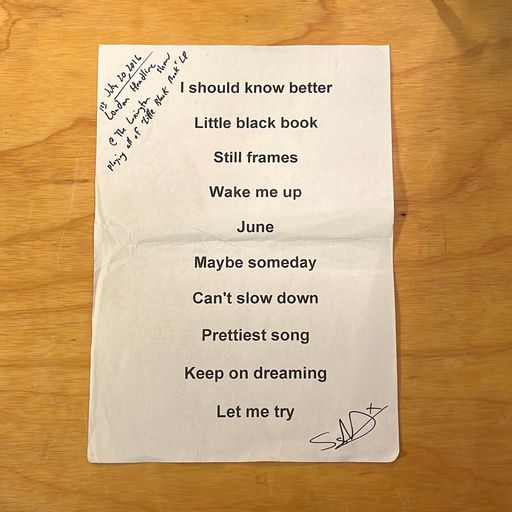 1st July 2016
London Headline show
@ The Lexington
Playing all of "Little Black Book" LP
I should know better
Little black book
Still frames
Wake me up
June
Maybe someday
Can't slow down
Prettiest song
Keep on dreaming
Let me try